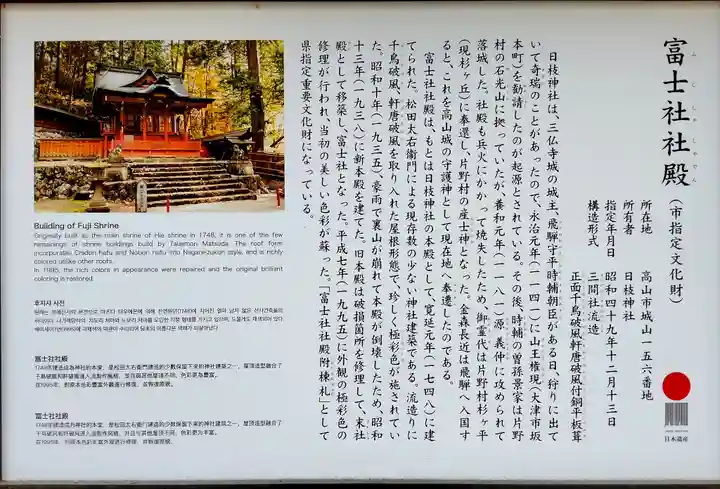 富士社社殿(市指定文化財)
ふじしゃしゃでん
所在地 高山市城山一五六番地
所有者 日枝神社
指定年月日 昭和四十九年十二月十三日
構造形式 三間社流造
正面千鳥破風軒唐破風付銅平板葺
日枝神社は、三仏寺城の城主、飛騨守平時輔朝臣がある日、狩りに出て
いて奇瑞のことがあったので、永治元年(一一四一)に山王権現(大津市坂
本町)を勧請したのが起源とされている。その後、時輔の曽孫景家は片野
村の石光山に拠っていたが、養和元年(一一八一)源義仲に攻められて
落城した。社殿も兵火にかかって焼失したため、御霊代は片野村杉ヶ平
(現杉ヶ丘)に奉還し、片野村の産土神となった。金森長近は飛騨へ入国す
ると、これを高山城の守護神として現在地へ奉遷したのである。
富士社社殿は、もとは日枝神社の本殿として、寛延元年(一七四八)に建
てられた。松田太右衛門による現存数の少ない神社建築である。流造りに
千鳥破風、軒唐破風を取り入れた屋根形態で、珍しく極彩色が施されてい
た。昭和十年(一九三五)、豪雨で裏山が崩れて本殿が倒壊したため、昭和
十三年(一九三八)に新本殿を建てた。旧本殿は破損箇所を修理して、末社
殿として移築し、富士社となった。平成七年(一九九五)に外観の極彩色の
修理が行われ、当初の美しい色彩が蘇った。「富士社社殿附棟札」として
県指定重要文化財になっている。
日本遺産
Building of Fuji Shrine
Originally built as the main shrine of Hie shrine in 1748, it is one of the few
remainings of shrine buildings build by Taiaemon Matsuda. The roof form
incorporates Chidori hafu and Nokon hafu into Nagare-zukuri style, and is richly
colored unlike other roofs.
In 1995, the rich colors in appearance were repaired and the original brilliant
coloring is restored.
후지샤 사전
富士社社殿
富士社社殿